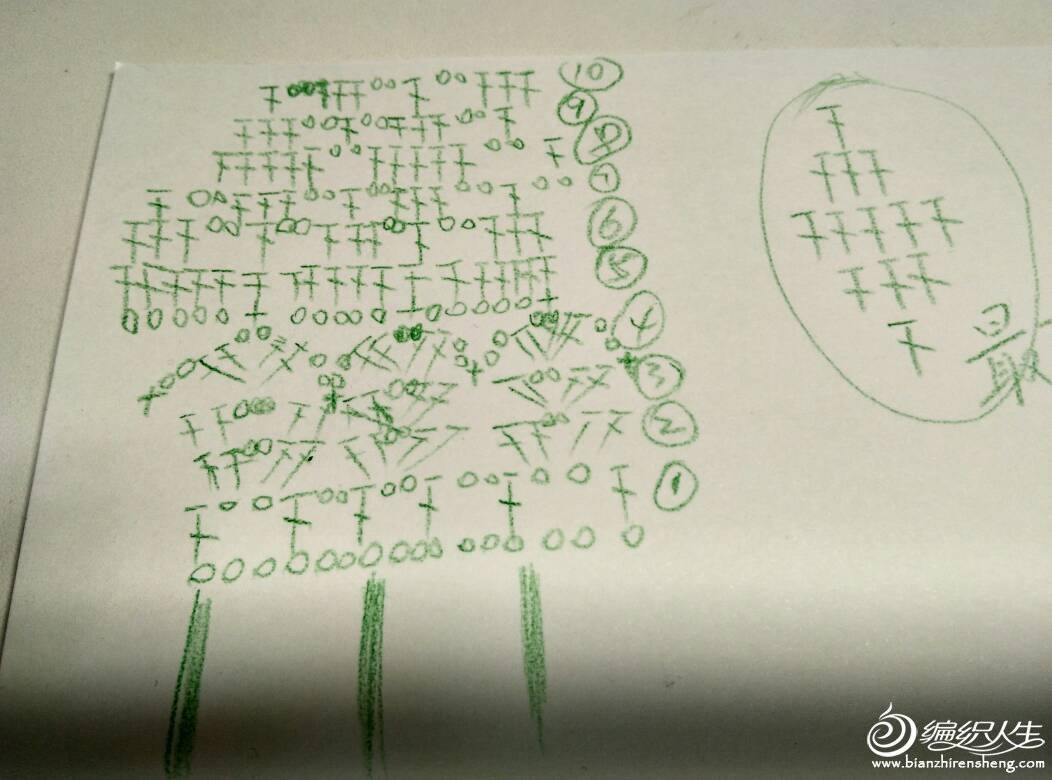 ⑩
⑨
⑧
⑦
⑥
⑤
④
③
②
①
编织人生
www.bianzhirensheng.com